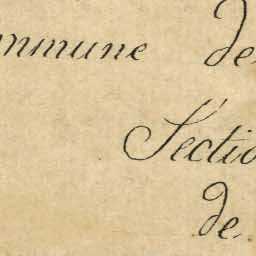 mmune de
Sectio
de